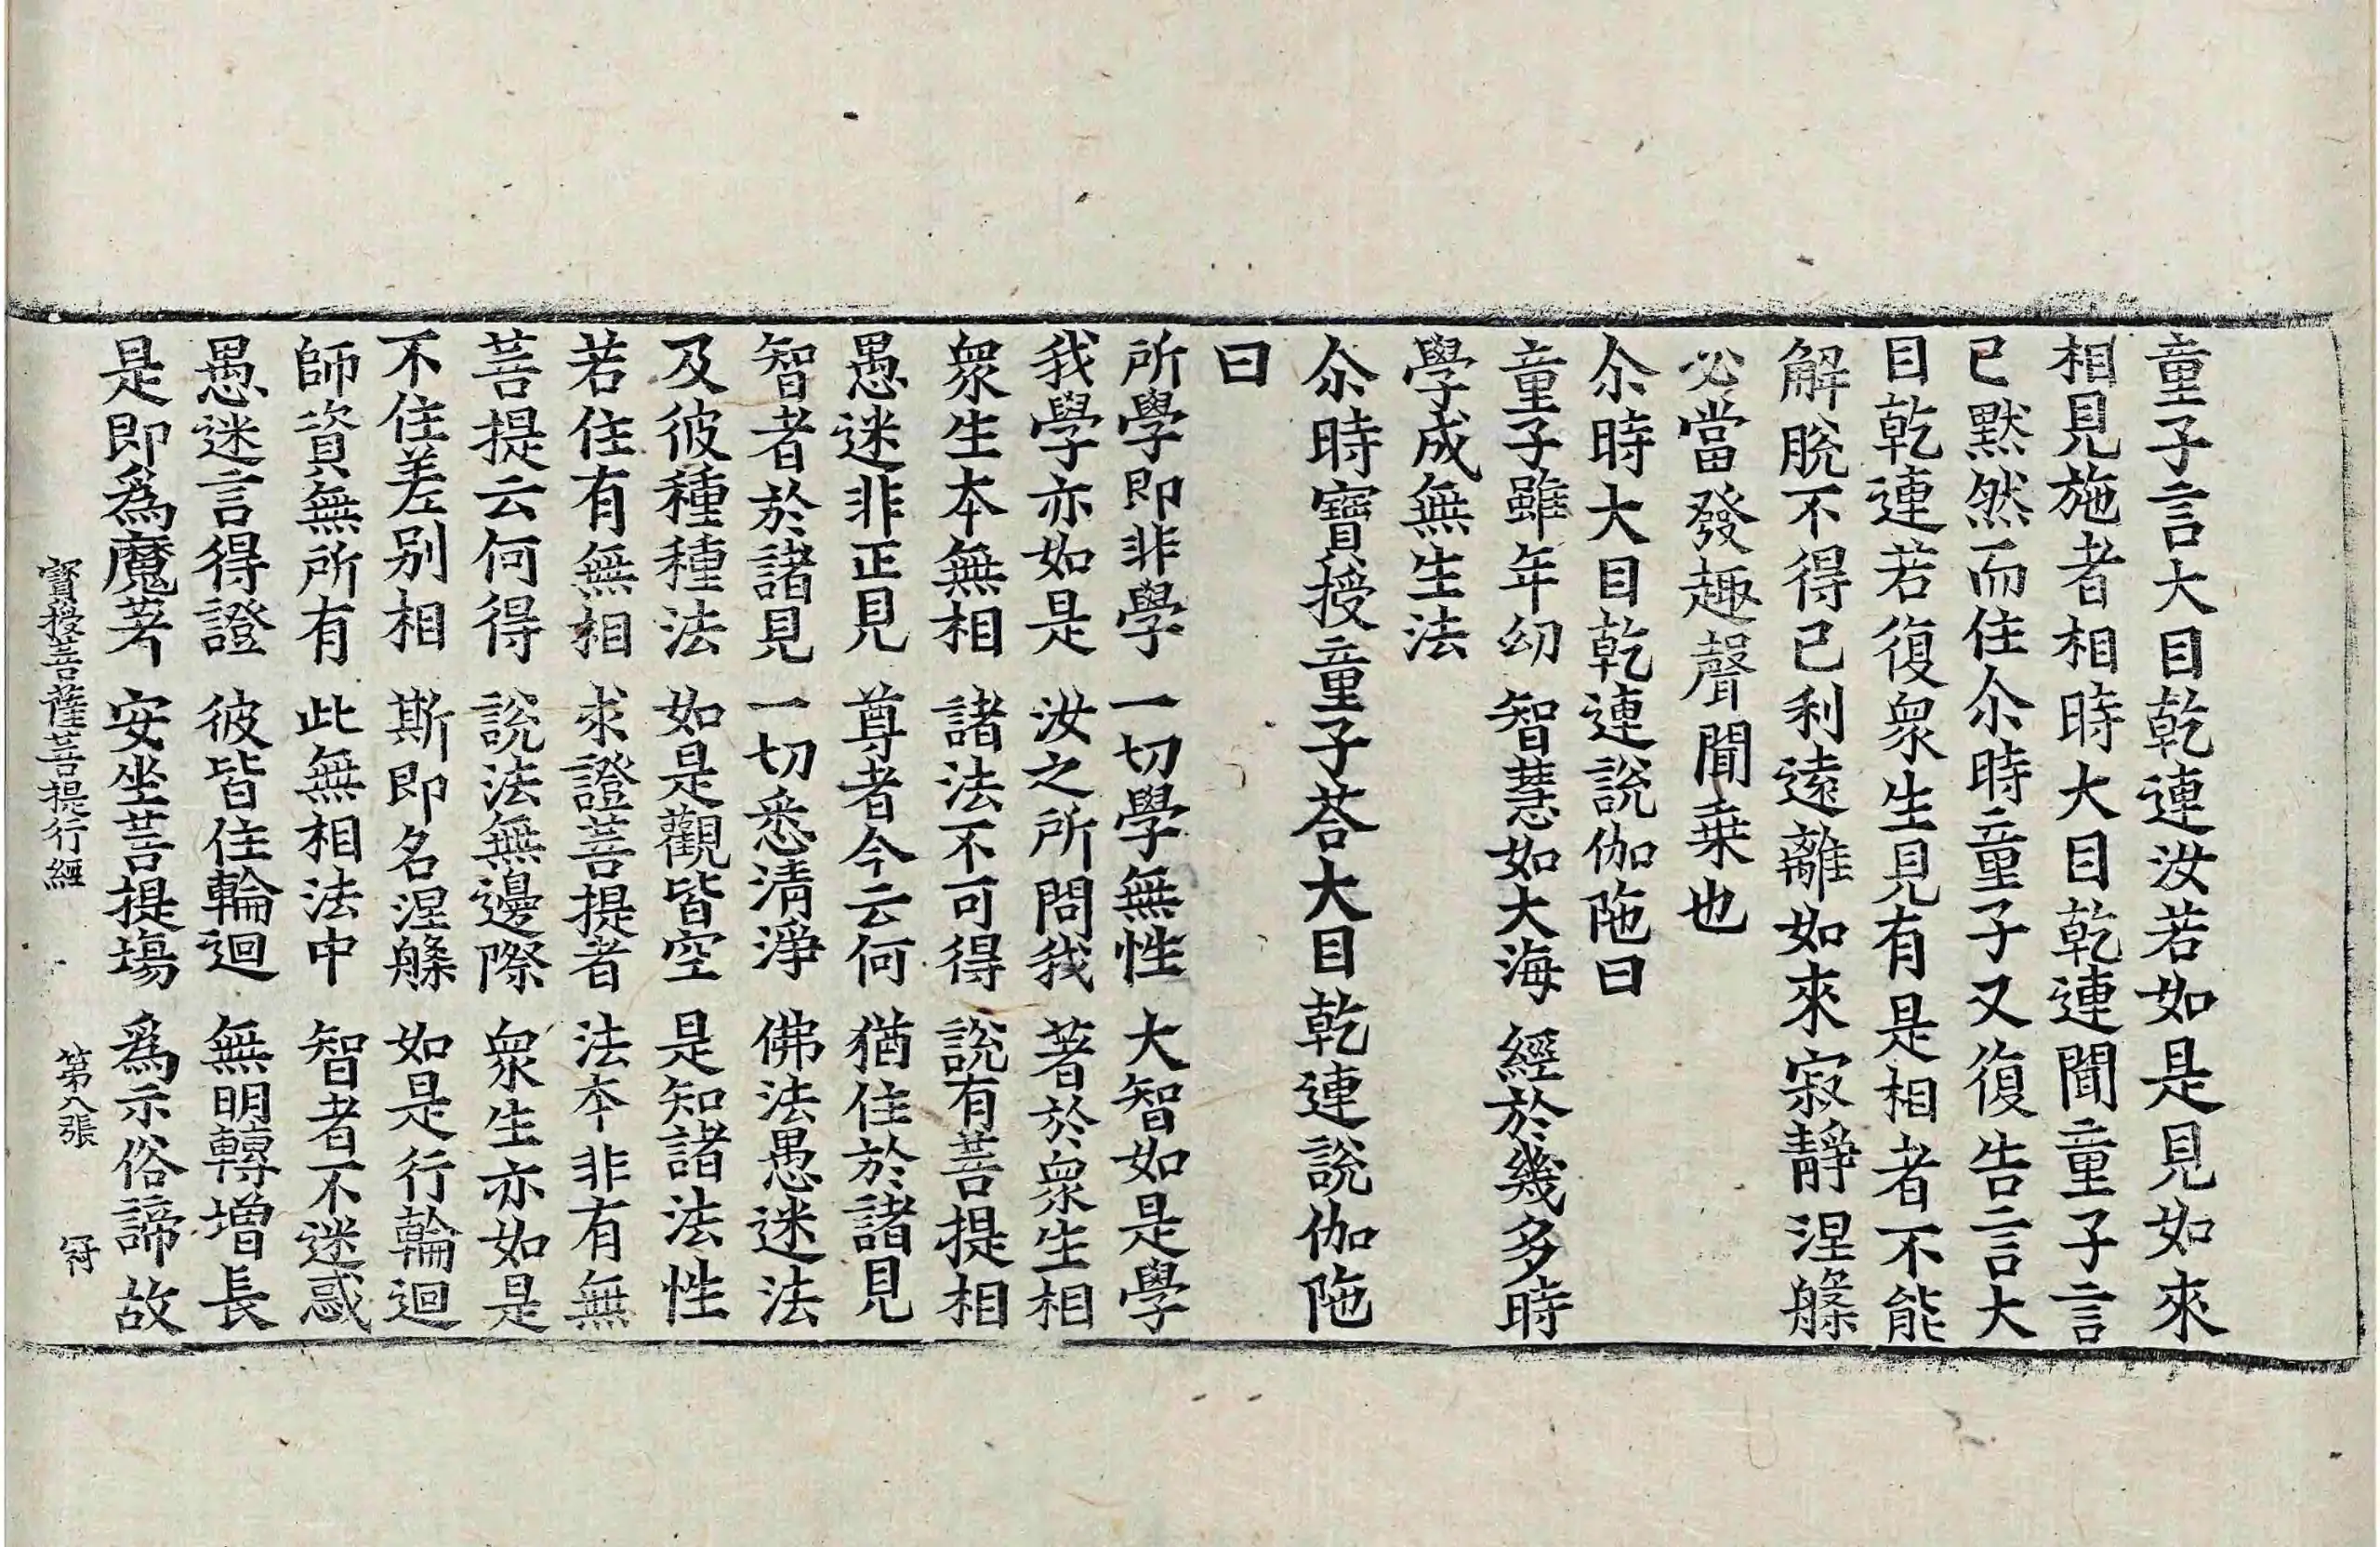 童子言大目乾連汝若如是見如來
相見施者相時大目乾連聞童子言
已默然而住尒時童子又復告言大
目乾連若復衆生見有是相者不能
解脫不得己利遠離如來寂靜涅槃
必當發趣聲聞乗也
尒時大目乾連說伽陁曰
童子雖年幼　智慧如大海　經於幾多時
學成無生法
尒時寶授童子荅大目乾連說伽陁
曰
所學即非學　一切學無性　大智如是學
我學亦如是　汝之所問我　著於衆生相
衆生本無相　諸法不可得　說有菩提相
愚迷非正見　尊者今云何　猶住於諸見
智者於諸見　一切悉清淨　佛法愚迷法
及彼種種法　如是觀皆空　是知諸法性
若住有無相　求證菩提者　法本非有無
菩提云何得　說法無邊際　衆生亦如是
不住差别相　斯即名涅槃　如是行輪迴
師資無所有　此無相法中　智者不迷惑
愚迷言得證　彼皆住輪迴　無明轉增長
是即爲魔著　安坐菩提場　爲示俗諦故
寶授菩薩菩提行經　第八張　冠